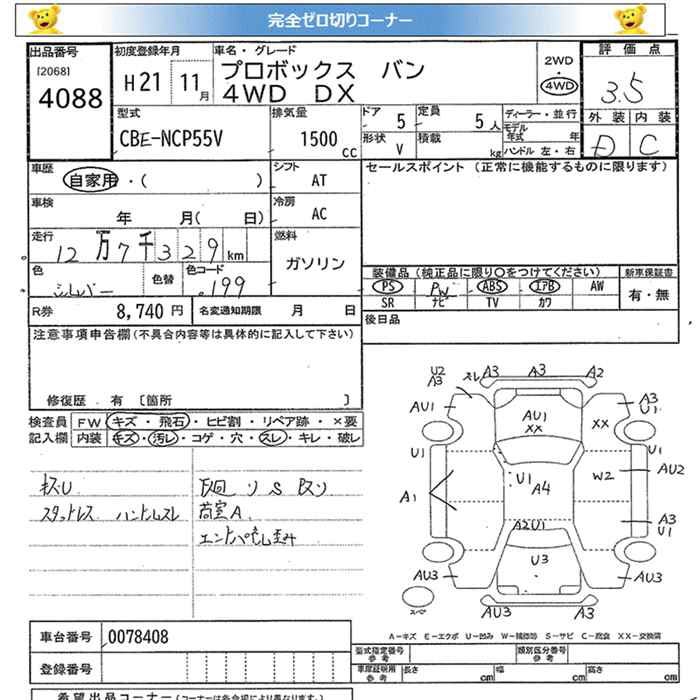 完全ゼロ切りコーナー
出品番号
[2068]
4088
初度登録年月
H21 11月
車名・グレード
プロボックス バン
4WD DX
2WD
4WD
評価点
3.5
外装 内装
D C
型式
CBE-NCP55V
排気量
1500 CC
ドア 5
形状 V
定員 5 人
積載 kg
ディーラー・並行
モデル年式 年
ハンドル 左・右
車歴
自家用・( )
シフト
AT
車検
年 月( 日)
冷房
AC
走行
12万7千329km
燃料
ガソリン
色
シルバー
色替
色コード
199
R券 8,740 円
名変通知期限 月 日
セールスポイント (正常に機能するものに限ります)
装備品(純正品に限り○をつけてください)
新車保証書
PS PW ABS エアB AW
SR ナビ TV カワ
有・無
後日品
注意事項申告欄(不具合内容等は具体的に記入して下さい)
修復歴 有 〔箇所 〕
検査員記入欄
FW キズ・飛石・ヒビ割・リペア跡・×要
内装 キズ・汚レ・コゲ・穴・スレ・キレ・破レ
キズU
スタットレス ハンドルスレ
下廻り S サビ
荷室A
U2
A3
スレ A3
A3
A2
AU1
A3
U1
AU1
XX
XX
U1
U1
A1
U1
A4
W2
AU2
A2U1
A3
U1
U3
AU3
AU3
スペア
AU3
A3
A-キズ E-エクボ U-凹み W-補修跡 S-サビ C-腐食 XX-交換済
車台番号 0078408
登録番号
型式指定番号
参考
類別区分番号
参考
車庫証明用
参考
長さ cm
幅 cm
高さ cm
希望出品コーナー